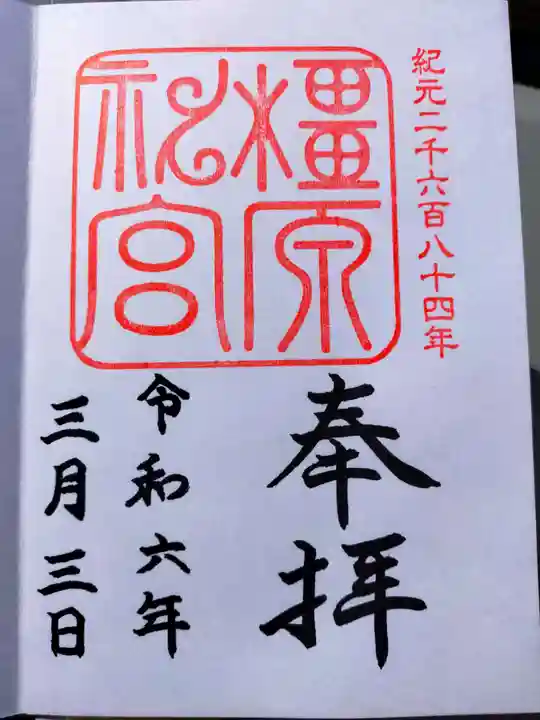 紀元二千六百八十四年
橿原
神宮
奉拝
令和六年
三月三日